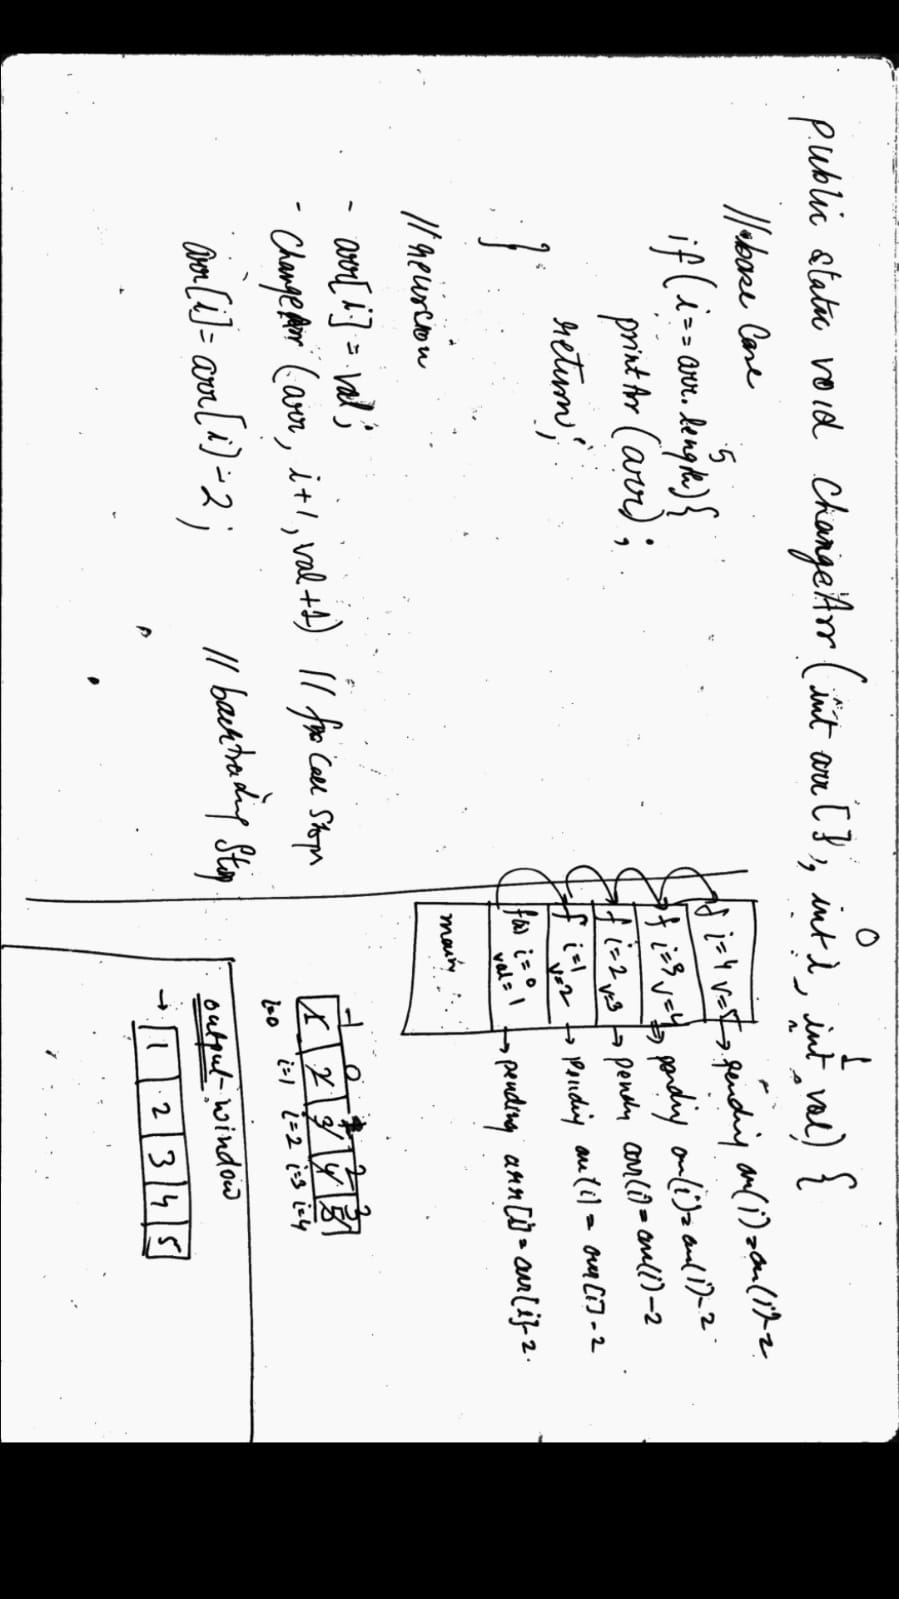 public static void changeArr (int arr[], int i, int val) {
0
1
//base Case
if (i == arr.length) {
5
printArr (arr);
return;
}
//recursion
- arr[i] = val;
- changeArr (arr, i+1, val+1) // fnx Call Step
arr[i] = arr[i] - 2; // backtracking Step
f i=4 v=5 → pending arr(i) = arr(i) - 2
f i=3 v=4 → pending arr(i) = arr(i) - 2
f i=2 v=3 → pending arr(i) = arr(i) - 2
f i=1 v=2 → pending arr(i) = arr[i] - 2
f(x) i=0 val=1 → pending arr[i] = arr[i] - 2.
main
-1 0 1 2 3
1 2 3 4 5
i=0 i=1 i=2 i=3 i=4
output window
→ 1 2 3 4 5